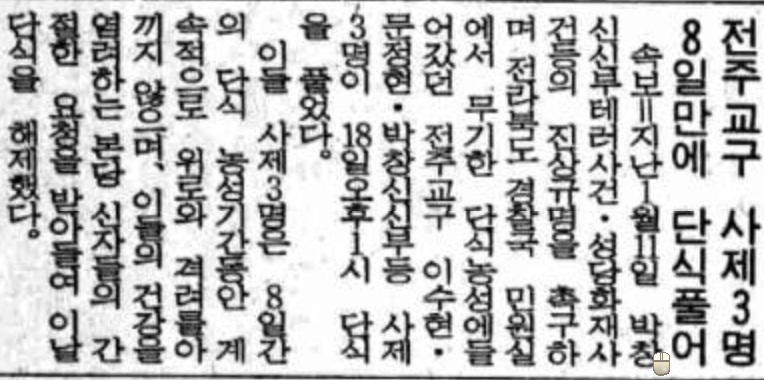 전주교구 사제3명
8일만에 단식풀어
속보=지난1월11일 박창
신신부테러사건·성당화재사
건등의 진상규명을 촉구하
며 전라북도 경찰국 민원실
에서 무기한 단식농성에들
어갔던 전주교구 이수현·
문정현·박창신신부등 사제
3명이 18일오후1시 단식
을 풀었다.
이들 사제3명은 8일간
의 단식 농성기간동안 계
속적으로 위로와 격려를아
끼지 않으며, 이들의 건강을
염려하는 본당 신자들의 간
절한 요청을 받아들여 이날
단식을 해제했다.